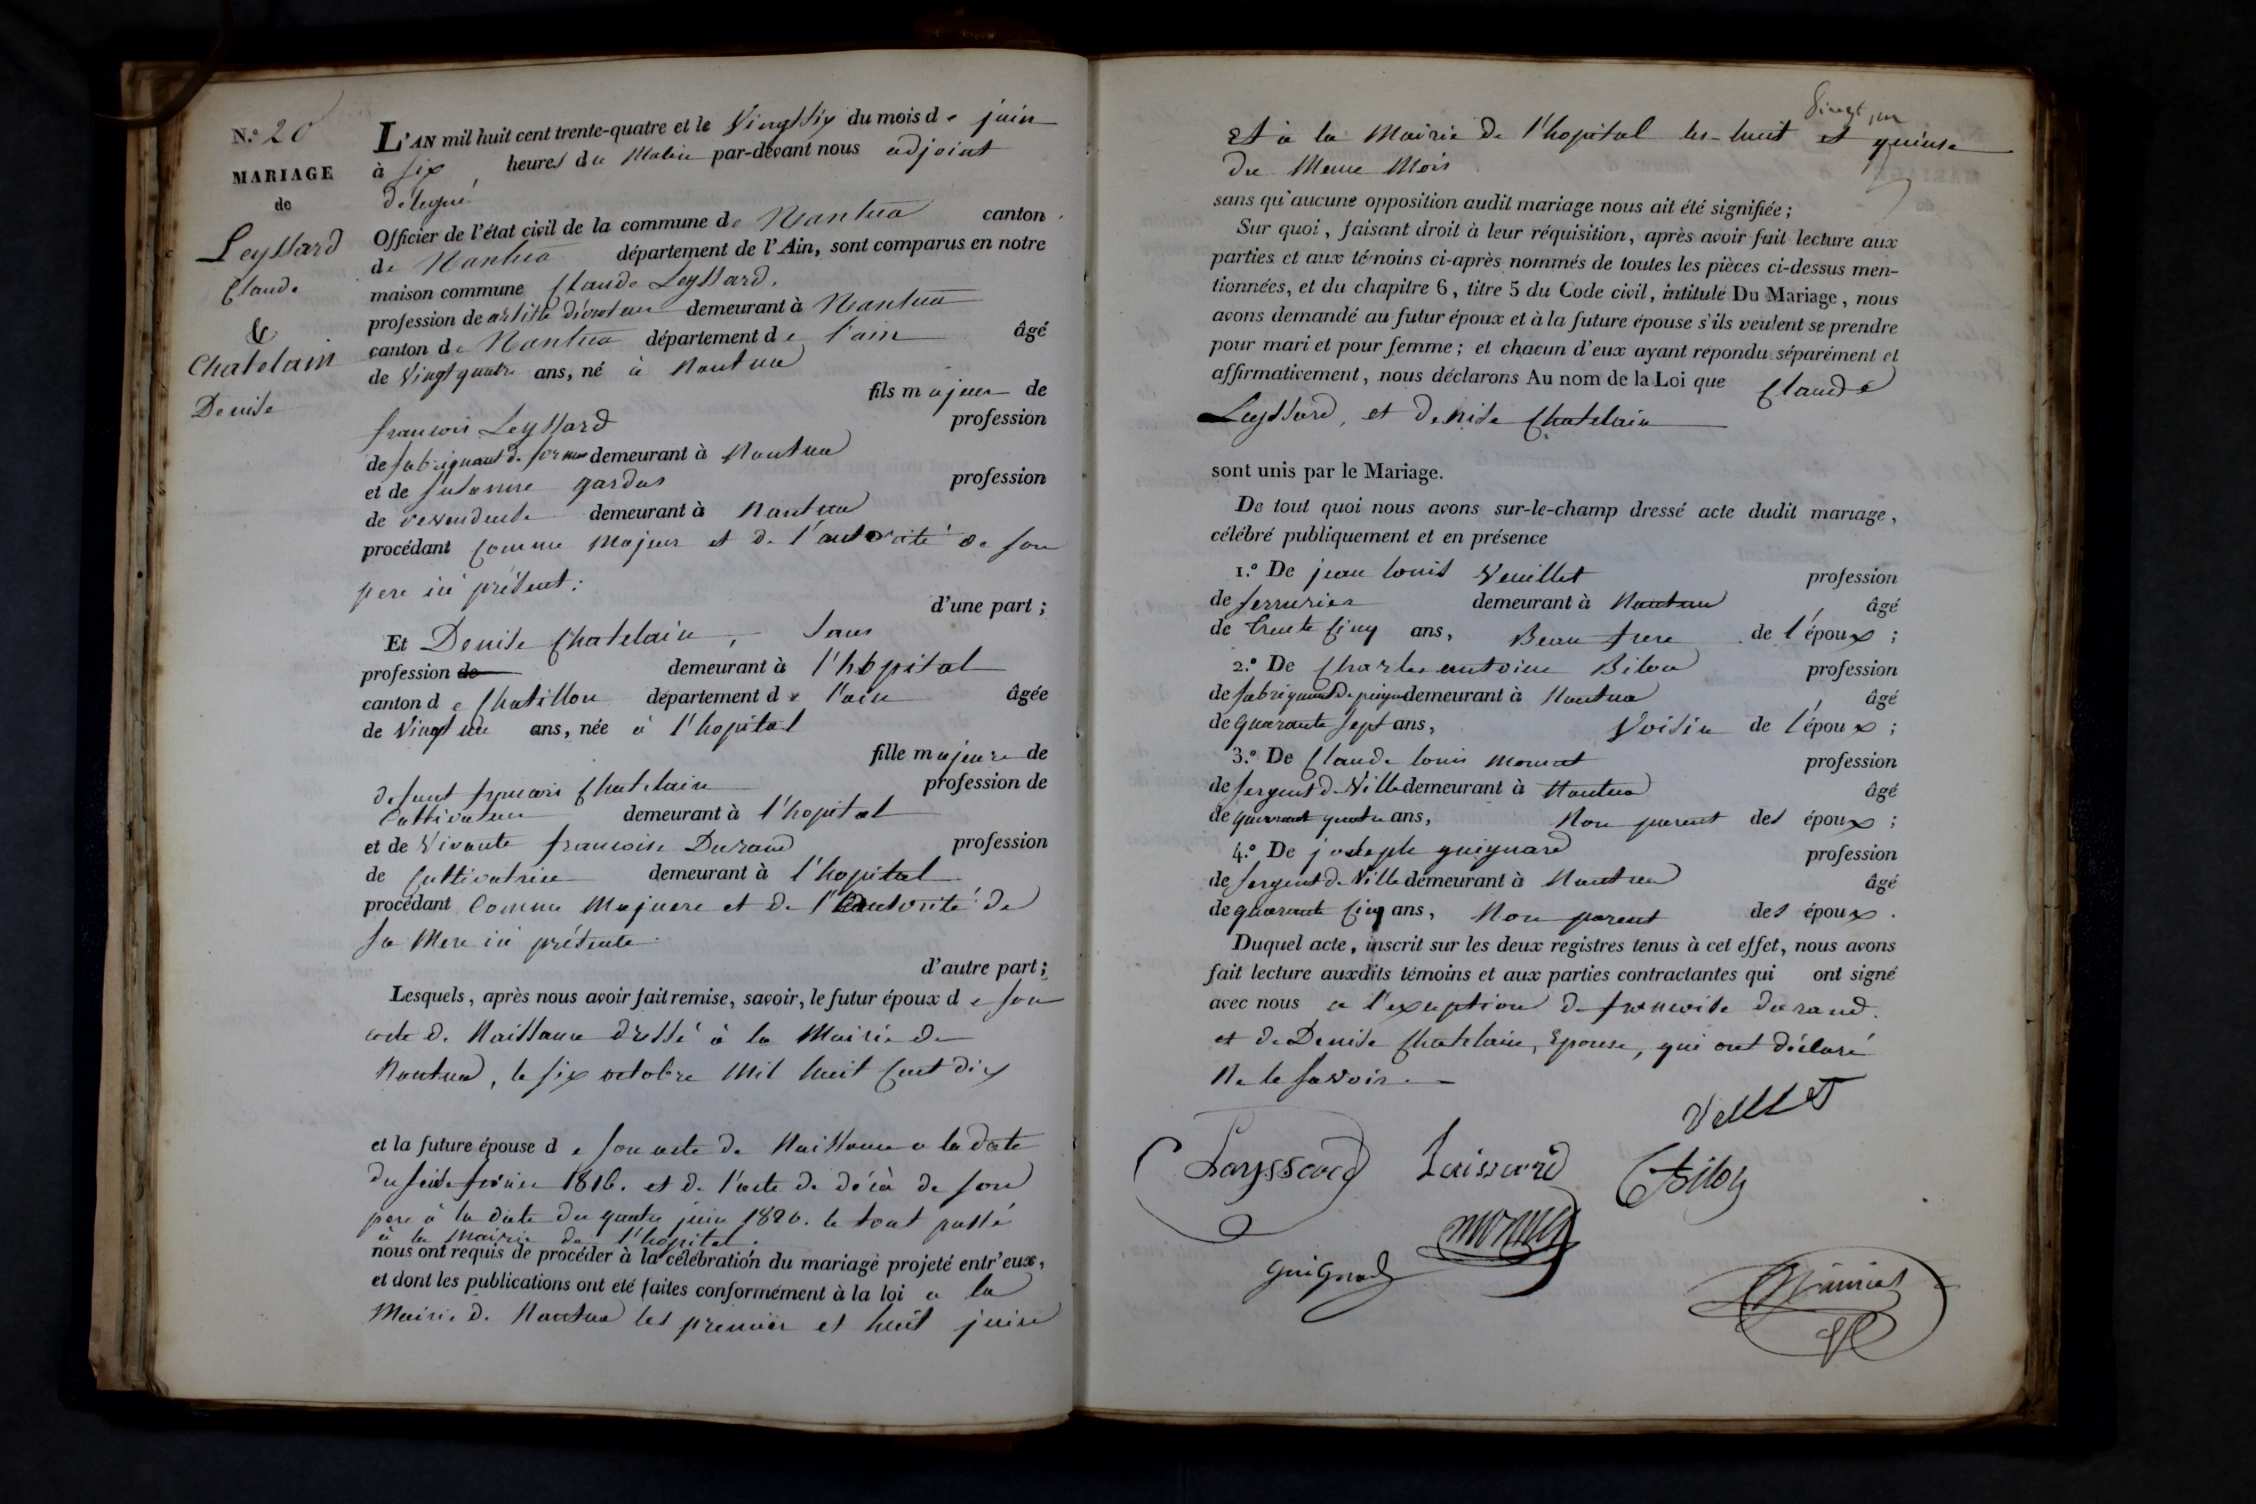 N.º 20
MARIAGE
de
Leyssard
Claude
&
Chatelain
Denise
L'AN mil huit cent trente-quatre et le Vingt Six du mois de juin
à Six heures du Matin par-devant nous adjoint
délégué
Officier de l'état civil de la commune de Nantua canton
de Nantua département de l'Ain, sont comparus en notre
maison commune Claude Leyssard,
profession de artiste demeurant à Nantua
canton de Nantua département de l'ain âgé
de Vingt quatre ans, né à Nantua
fils majeur de
francois Leyssard profession
de fabriquant de demeurant à Nantua
et de Susanne gardas profession
de revendeuse demeurant à Nantua
procédant Comme Majeur et de l'autorité de son
pere ici présent;
d'une part ;
Et Denise Chatelain, Sans
profession de demeurant à l'hôpital
canton de Chatillon département de l'ain âgée
de Vingt un ans, née à l'hopital
fille majeure de
défunt francois Chatelain profession de
Cultivateur demeurant à l'hopital
et de Vivante francoise Durand profession
de Cultivatrice demeurant à l'hopital
procédant Comme Majeure et de l'autorité de
Sa Mere ici présente
d'autre part ;
Lesquels, après nous avoir fait remise, savoir, le futur époux de son
acte de Naissance dressé à la Mairie de
Nantua, le six octobre Mil huit Cent dix
et la future épouse de son acte de Naissance a la date
du seize février 1816. et de l'acte de décès de son
pere à la date du quatre juin 1820. le tout passé
à la Mairie de l'hôpital.
nous ont requis de procéder à la célébration du mariage projeté entr'eux,
et dont les publications ont été faites conformément à la loi a la
Mairie de Nantua les premier et huit juin
Vingt un
Et à la Mairie de l'hopital les huit et quinse
du Meme Mois
sans qu'aucune opposition audit mariage nous ait été signifiée ;
Sur quoi, faisant droit à leur réquisition, après avoir fait lecture aux
parties et aux témoins ci-après nommés de toutes les pièces ci-dessus men-
tionnées, et du chapitre 6, titre 5 du Code civil, intitulé Du Mariage, nous
avons demandé au futur époux et à la future épouse s'ils veulent se prendre
pour mari et pour femme ; et chacun d'eux ayant répondu séparément et
affirmativement, nous déclarons Au nom de la Loi que Claude
Leyssard, et Denise Chatelain
sont unis par le Mariage.
De tout quoi nous avons sur-le-champ dressé acte dudit mariage,
célébré publiquement et en présence
1.º De jean louis Veuillet profession
de serrurier demeurant à Nantua âgé
de trente Cinq ans, Beau frere de l'époux ;
2.º De Charles antoine Bilon profession
de fabriquant de peignes demeurant à Nantua âgé
de quarante sept ans, Voisin de l'époux ;
3.º De Claude louis profession
de sergent de Ville demeurant à Nantua âgé
de quarante quatre ans, Non parent des époux ;
4.º De joseph guignard profession
de sergent de Ville demeurant à Nantua âgé
de quarante Cinq ans, Non parent des époux.
Duquel acte, inscrit sur les deux registres tenus à cet effet, nous avons
fait lecture auxdits témoins et aux parties contractantes qui ont signé
avec nous a l'exception de francoise durand
et de Denise Chatelain, Epouse, qui ont déclaré
Ne le savoir.
Layssard Laissard
guignard